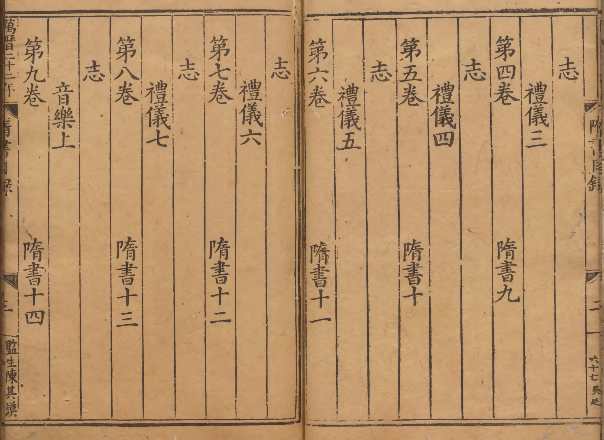 隋書目錄
二
六十七
志
禮儀三
第四卷 隋書九
志
禮儀四
第五卷 隋書十
志
禮儀五
第六卷 隋書十一
志
禮儀六
第七卷 隋書十二
志
禮儀七
第八卷 隋書十三
志
音樂上
第九卷 隋書十四
萬曆二十二年
隋書目錄
監生陳其謨